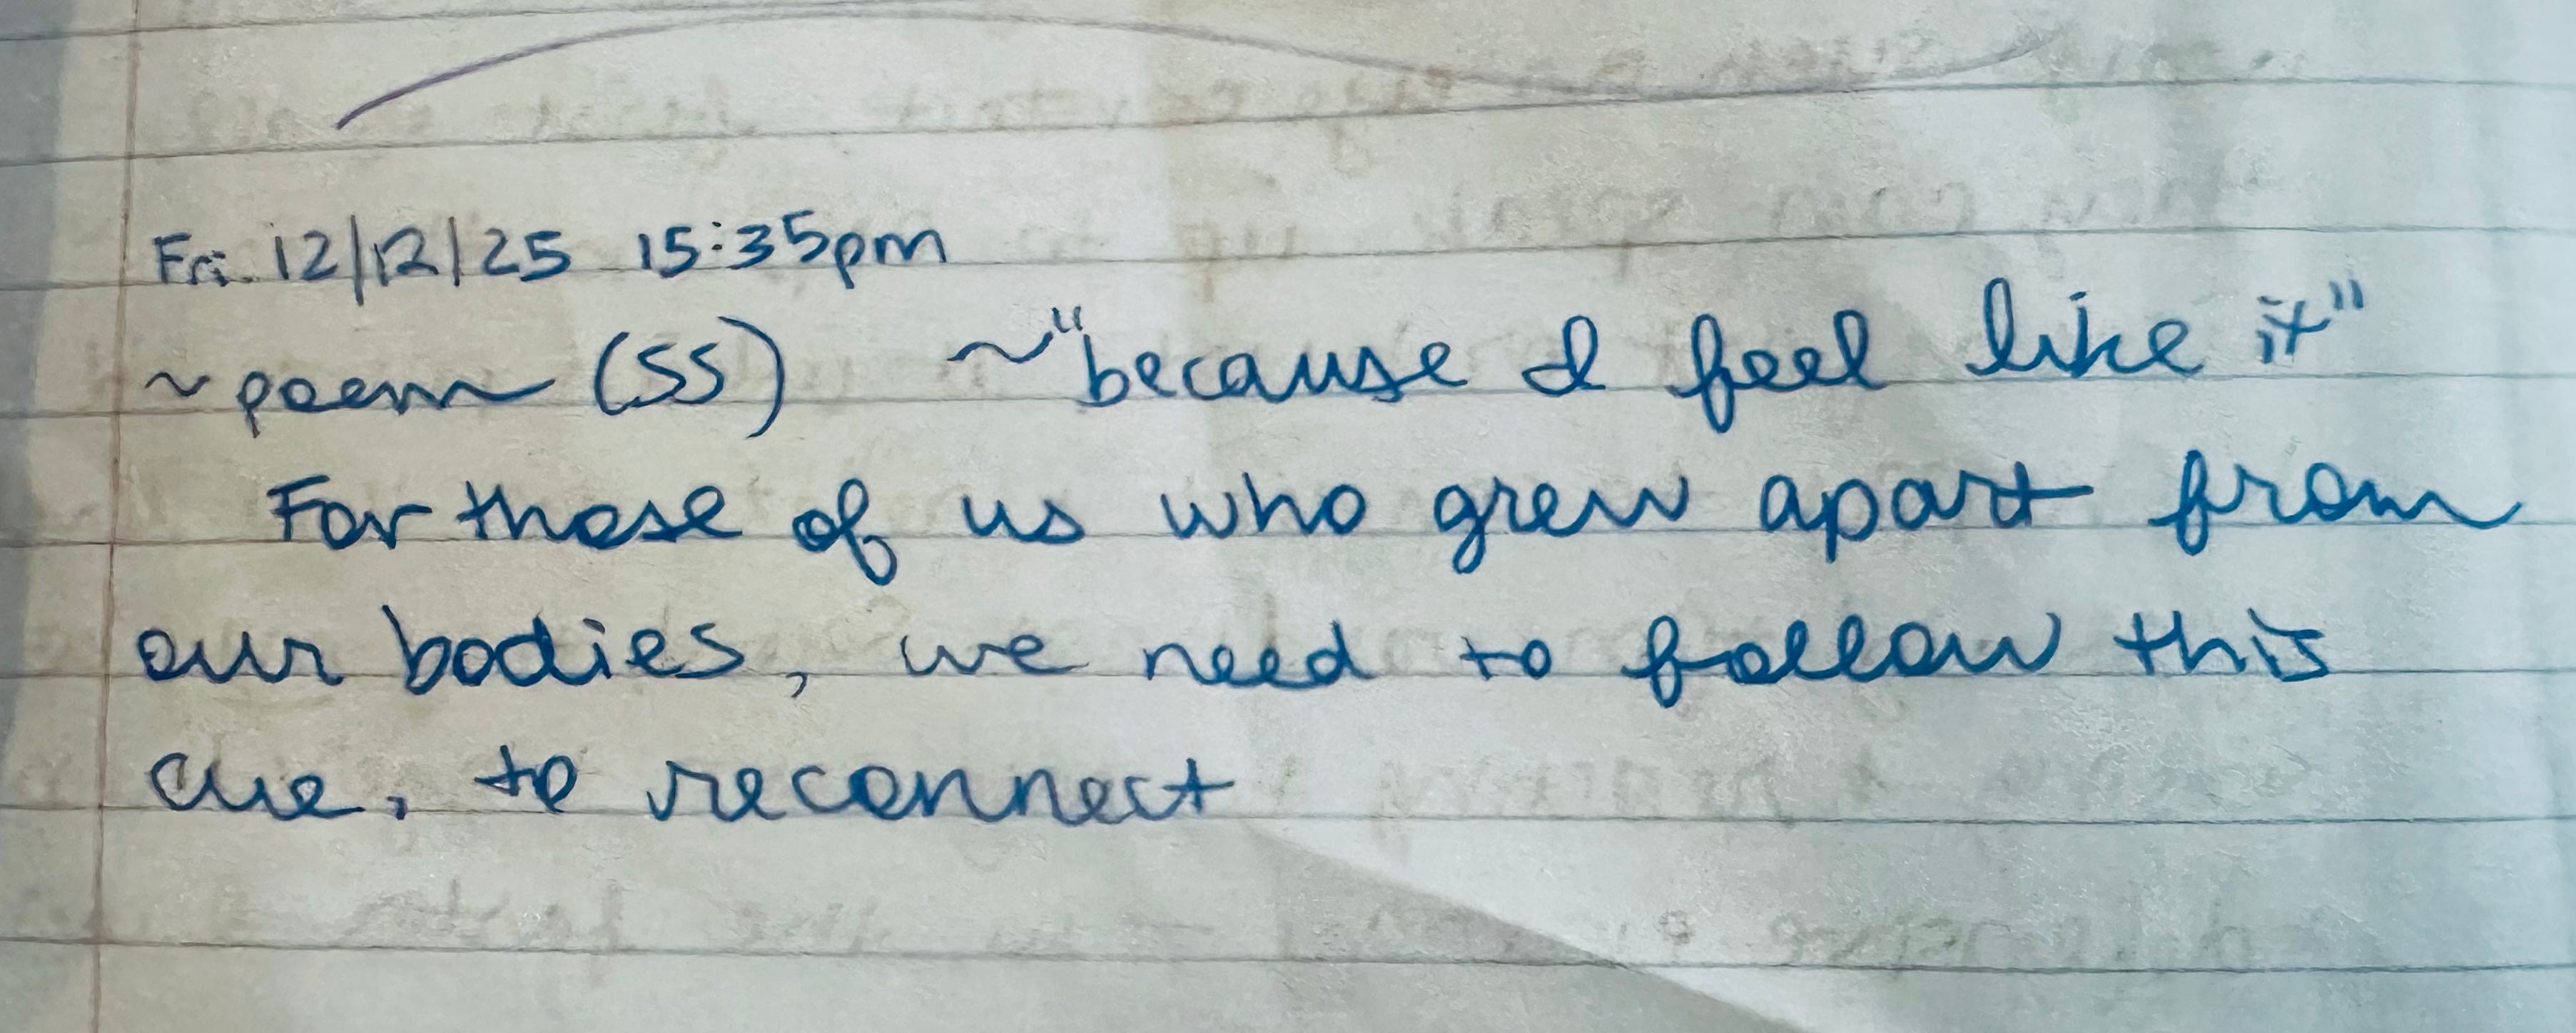 Fri. 12/12/25 15:35pm
~ poem (SS) ~"because I feel like it"
For those of us who grew apart from
our bodies, we need to follow this
cue, to reconnect